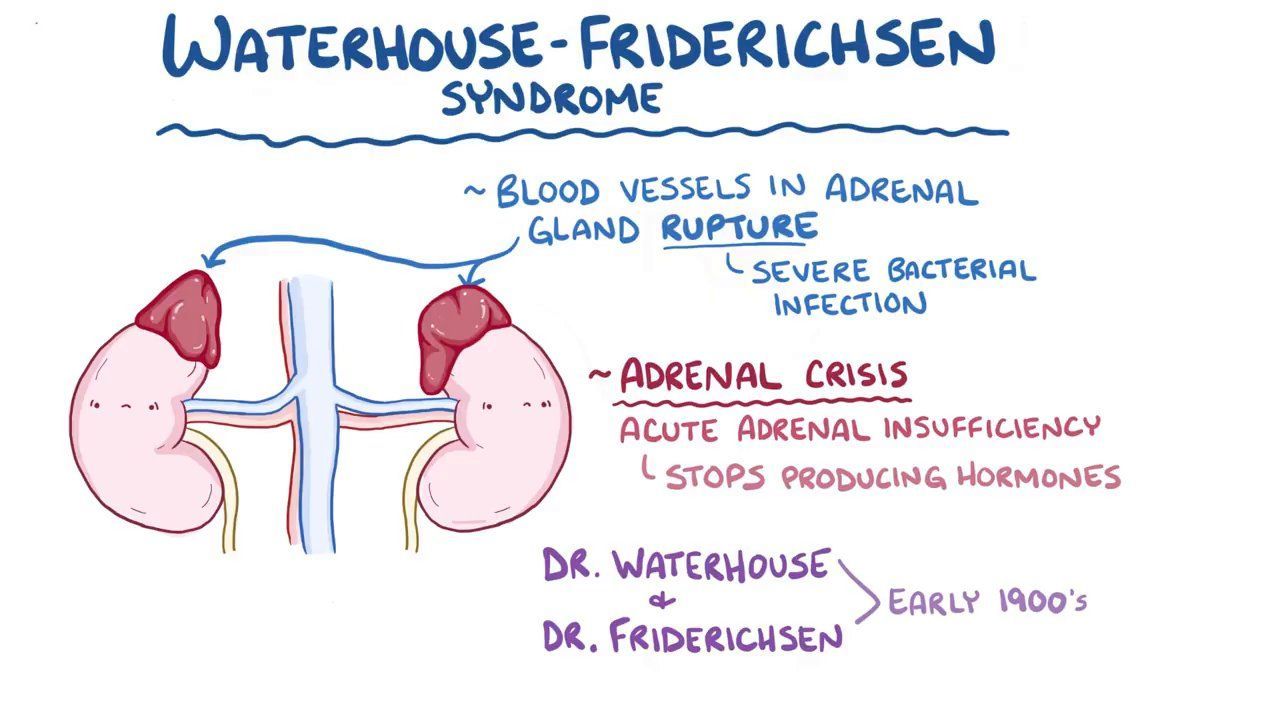 WATERHOUSE-FRIDERICHSEN
SYNDROME
~ BLOOD VESSELS IN ADRENAL
GLAND RUPTURE
SEVERE BACTERIAL
INFECTION
~ ADRENAL CRISIS
ACUTE ADRENAL INSUFFICIENCY
STOPS PRODUCING HORMONES
DR. WATERHOUSE
&
DR. FRIDERICHSEN
EARLY 1900's